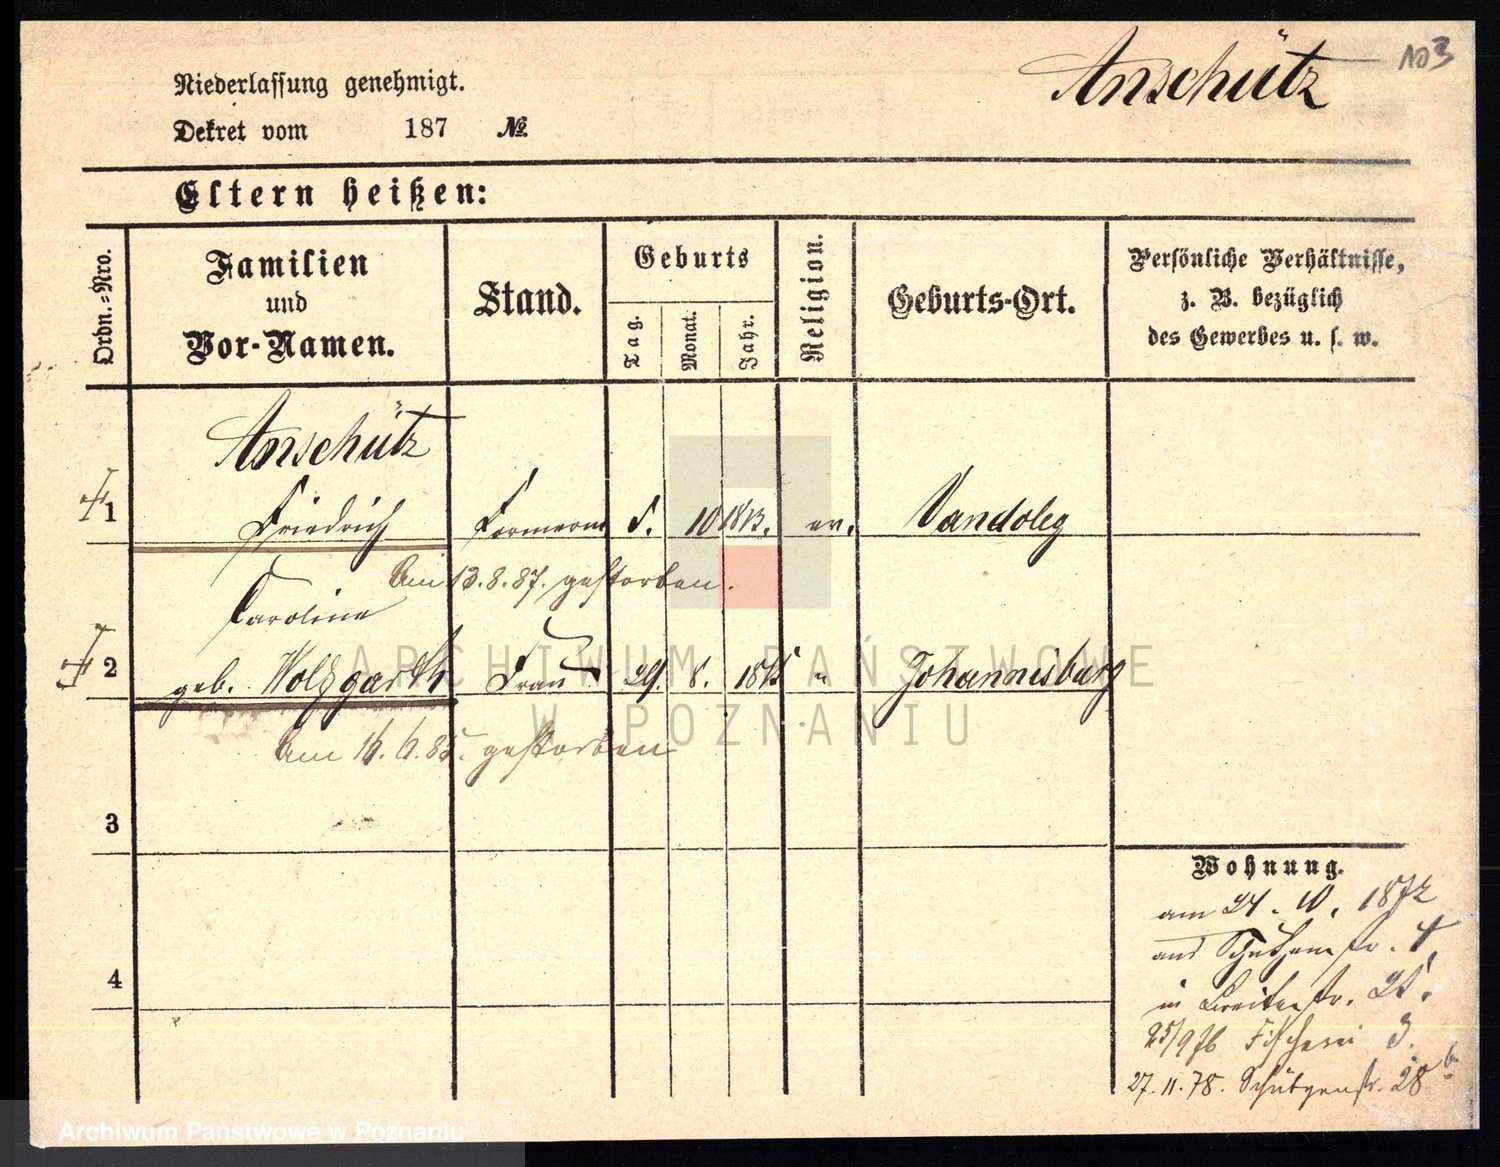 Anschütz
103
Niederlassung genehmigt.
Dekret vom 187 №
Eltern heißen:
Ordn.=Nro.
Familien
und
Vor-Namen.
Stand.
Geburts
Tag.
Monat.
Jahr.
Religion.
Geburts-Ort.
Persönliche Verhältnisse,
z. B. bezüglich
des Gewerbes u. s. w.
Anschütz
1 Friedrich 10 1813. ev.
Am 13.8.87. gestorben.
Caroline
2 geb. Frau 29. 8. " Johannisburg
Am 16.6.85. gestorben
3
4
Wohnung.
am 24. 10. 1872
aus Schützenstr. 4,
in Breitestr. 21.
25/9 76 Fischerei 3.
27.11.78. Schützenstr. 28 b
ARCHIWUM PAŃSTWOWE
W POZNANIU
Archiwum Państwowe w Poznaniu